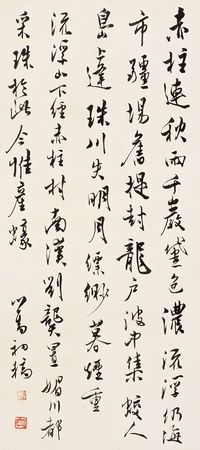 赤柱連秋雨千巖黛色濃流浮仍海
市疆場舊提封龍户波中集鮫人
島上逢珠川失明月縹緲暮煙重
流浮山下經赤柱村南漢劉龑置媚川都
采珠於此今惟產蠔
心畬初稿